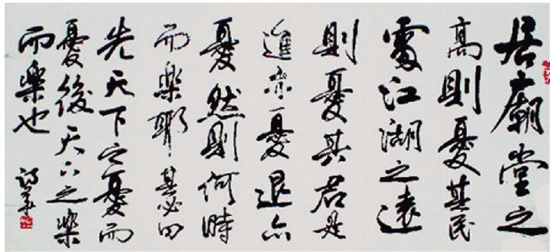 居廟堂之
高則憂其民
處江湖之遠
則憂其君是
進亦憂退亦
憂然則何時
而樂耶其必曰
先天下之憂而
憂後天下之樂
而樂也